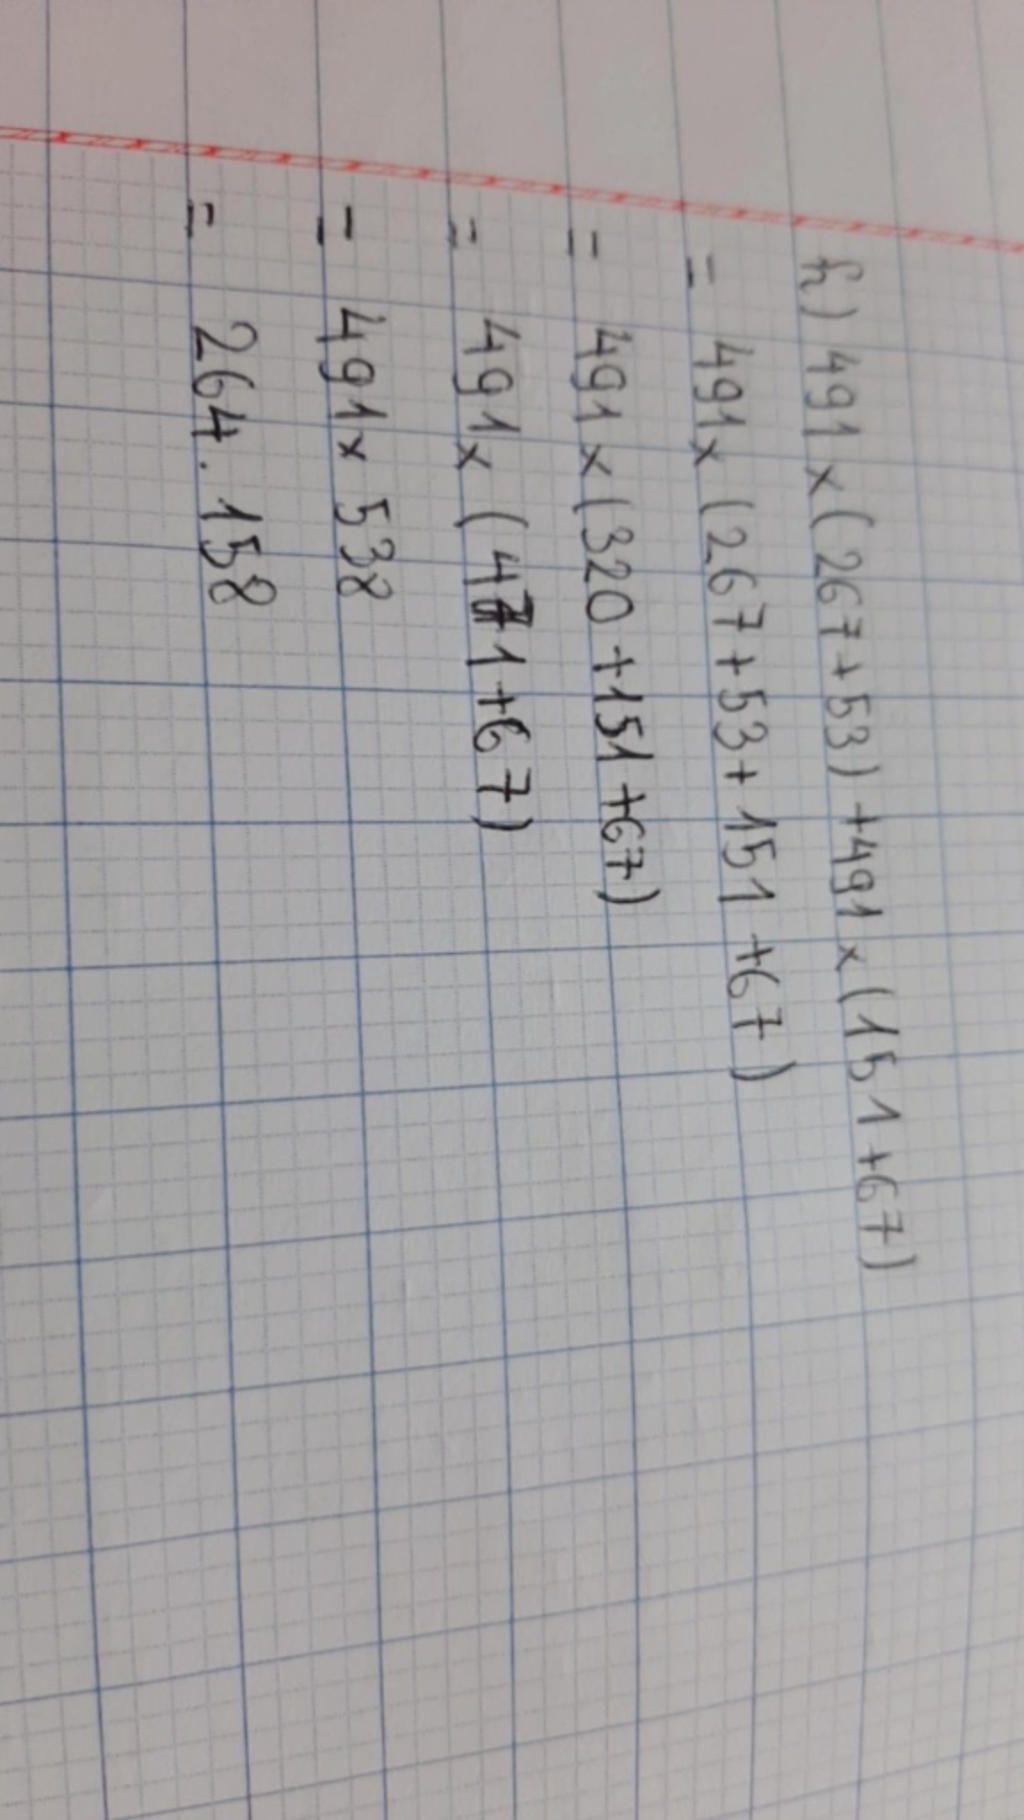 h) 491 x (267+53) +491 x (151 +67)
= 491 x (267+53+151 +67)
= 491 x (320 +151 +67)
= 491 x (471 +67)
= 491 x 538
= 264.158